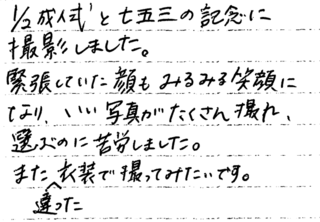 1/2成人式と七五三の記念に
撮影しました。
緊張していた顔もみるみる笑顔に
なり、いい写真がたくさん撮れ、
選ぶのに苦労しました。
また衣装で撮ってみたいです。
違った